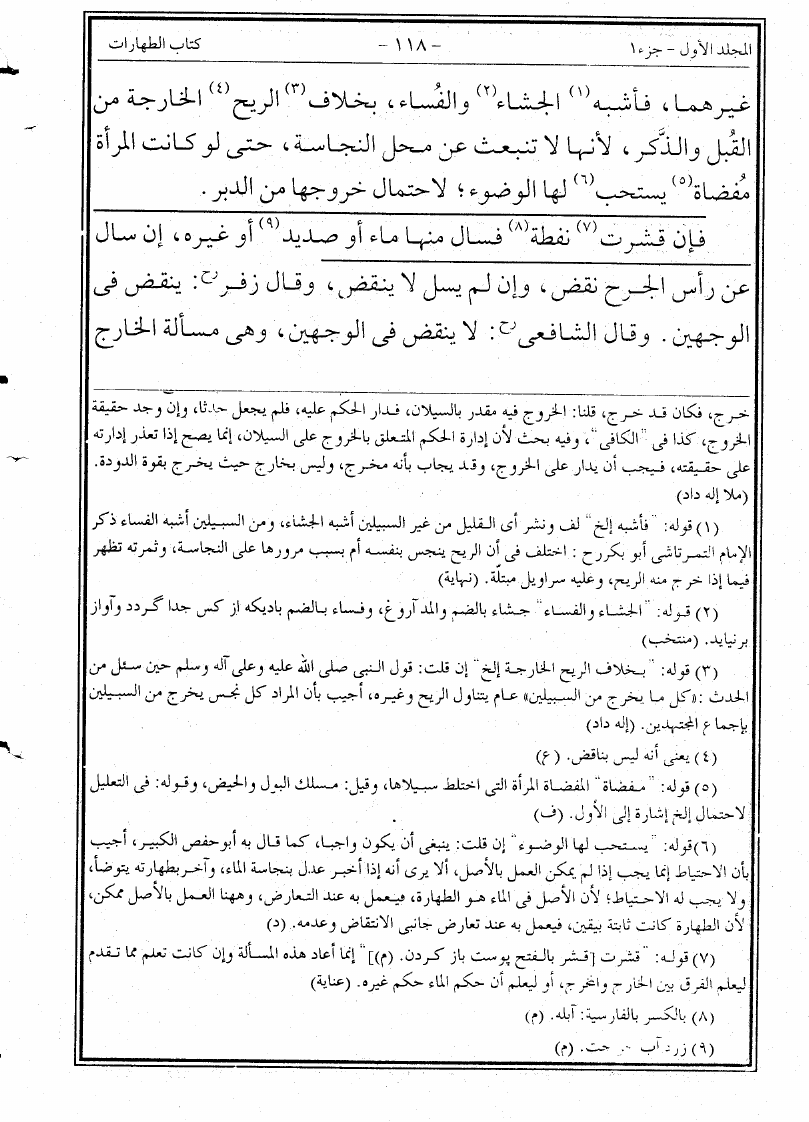 المجلد الأول - جزء١ - ١١٨ - كتاب الطهارات
غيرهما، فأشبه(١) الجشاء(٢) والفُساء، بخلاف(٣) الريح(٤) الخارجة من
القُبل والذَّكر، لأنها لا تنبعث عن محل النجاسة، حتى لو كانت المرأة
مُفضاة(٥) يستحب(٦) لها الوضوء؛ لاحتمال خروجها من الدبر.
فإن قشرت(٧) نفطة(٨) فسال منها ماء أو صديد(٩) أو غيره، إن سال
عن رأس الجرح نقض، وإن لم يسل لا ينقض، وقال زفرؒ: ينقض فى
الوجهين. وقال الشافعىؒ: لا ينقض فى الوجهين، وهى مسألة الخارج
خرج، فكان قد خرج، قلنا: الخروج فيه مقدر بالسيلان، فدار الحكم عليه، فلم يجعل حدثا، وإن وجد حقيقة
الخروج، كذا فى "الكافى"، وفيه بحث لأن إدارة الحكم المتعلق بالخروج على السيلان، إنما يصح إذا تعذر إدارته
على حقيقته، فيجب أن يدار على الخروج، وقد يجاب بأنه مخرج، وليس بخارج حيث يخرج بقوة الدودة.
(ملا إله داد)
(١) قوله: "فأشبه إلخ" لف ونشر أى القليل من غير السبيلين أشبه الجشاء، ومن السبيلين أشبه الفساء ذكر
الإمام التمرتاشى أبو بكررح: اختلف فى أن الريح ينجس بنفسه أم بسبب مرورها على النجاسة، وثمرته تظهر
فيما إذا خرج منه الريح، وعليه سراويل مبتلّة. (نهاية)
(٢) قوله: "الجشاء والفساء" جشاء بالضم والمد آروغ، وفساء بالضم باديكه از كس جدا گردد وآواز
برنيايد. (منتخب)
(٣) قوله: "بخلاف الريح الخارجة إلخ" إن قلت: قول النبى صلى الله عليه وعلى آله وسلم حين سئل من
الحدث: «كل ما يخرج من السبيلين» عام يتناول الريح وغيره، أجيب بأن المراد كل نجس يخرج من السبيلين
بإجماع المجتهدين. (إله داد)
(٤) يعنى أنه ليس بناقض. (ع)
(٥) قوله: "مفضاة" المفضاة المرأة التى اختلط سبيلاها، وقيل: مسلك البول والحيض، وقوله: فى التعليل
لاحتمال إلخ إشارة إلى الأول. (ف)
(٦) قوله: "يستحب لها الوضوء" إن قلت: ينبغى أن يكون واجبا، كما قال به أبوحفص الكبير، أجيب
بأن الاحتياط إنما يجب إذا لم يمكن العمل بالأصل، ألا يرى أنه إذا أخبر عدل بنجاسة الماء، وآخر بطهارته يتوضأ،
ولا يجب له الاحتياط؛ لأن الأصل فى الماء هو الطهارة، فيعمل به عند التعارض، وههنا العمل بالأصل ممكن،
لأن الطهارة كانت ثابتة بيقين، فيعمل به عند تعارض جانبى الانتقاض وعدمه. (د)
(٧) قوله: "قشرت [قشر بالفتح پوست باز كردن. (م)]" إنما أعاد هذه المسألة وإن كانت تعلم مما تقدم
ليعلم الفرق بين الخارج والمخرج، أو ليعلم أن حكم الماء حكم غيره. (عناية)
(٨) بالكسر بالفارسية: آبله. (م)
(٩) زرد آب (م)